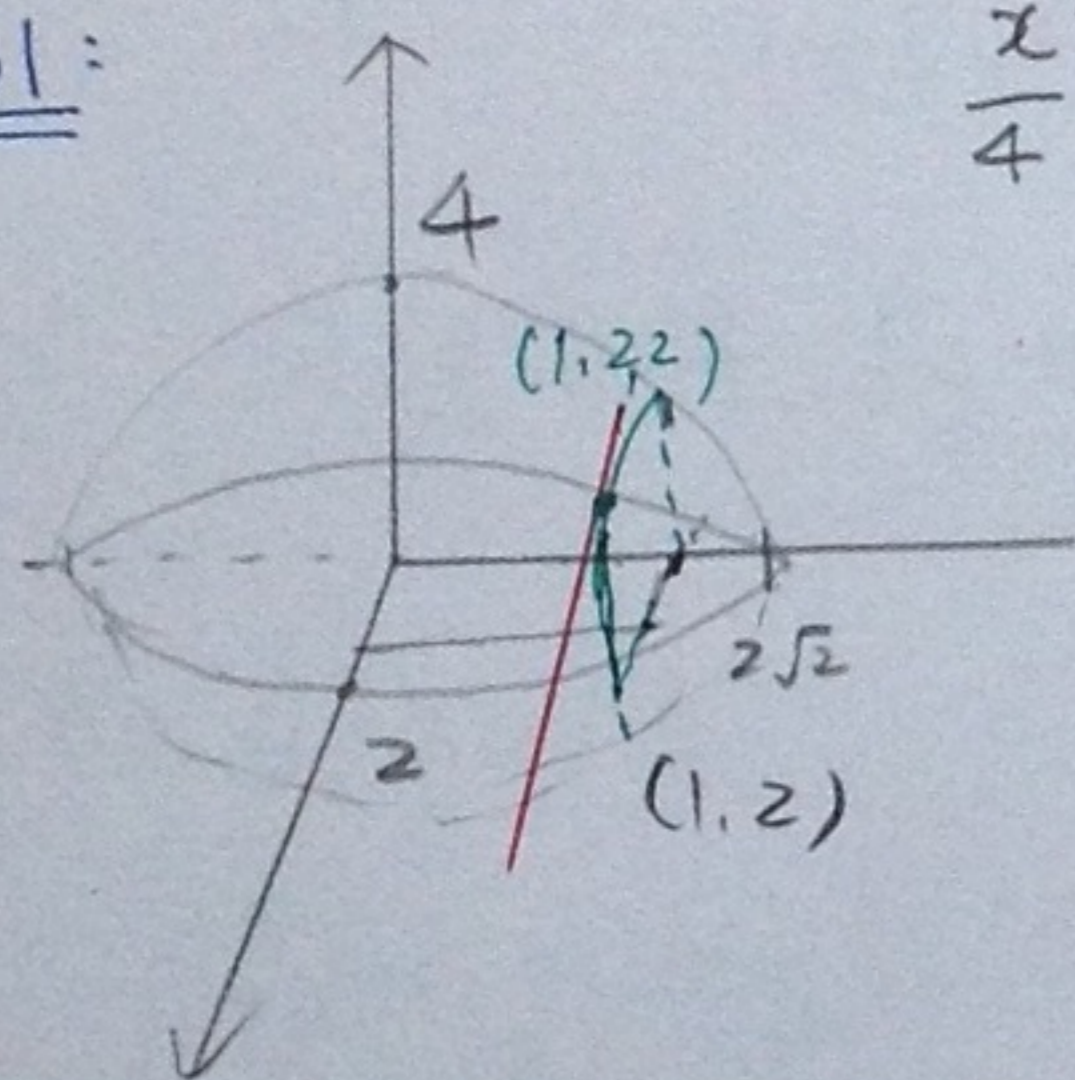 l:
x
4
4
(1,2,2)
2√2
2
(1,2)